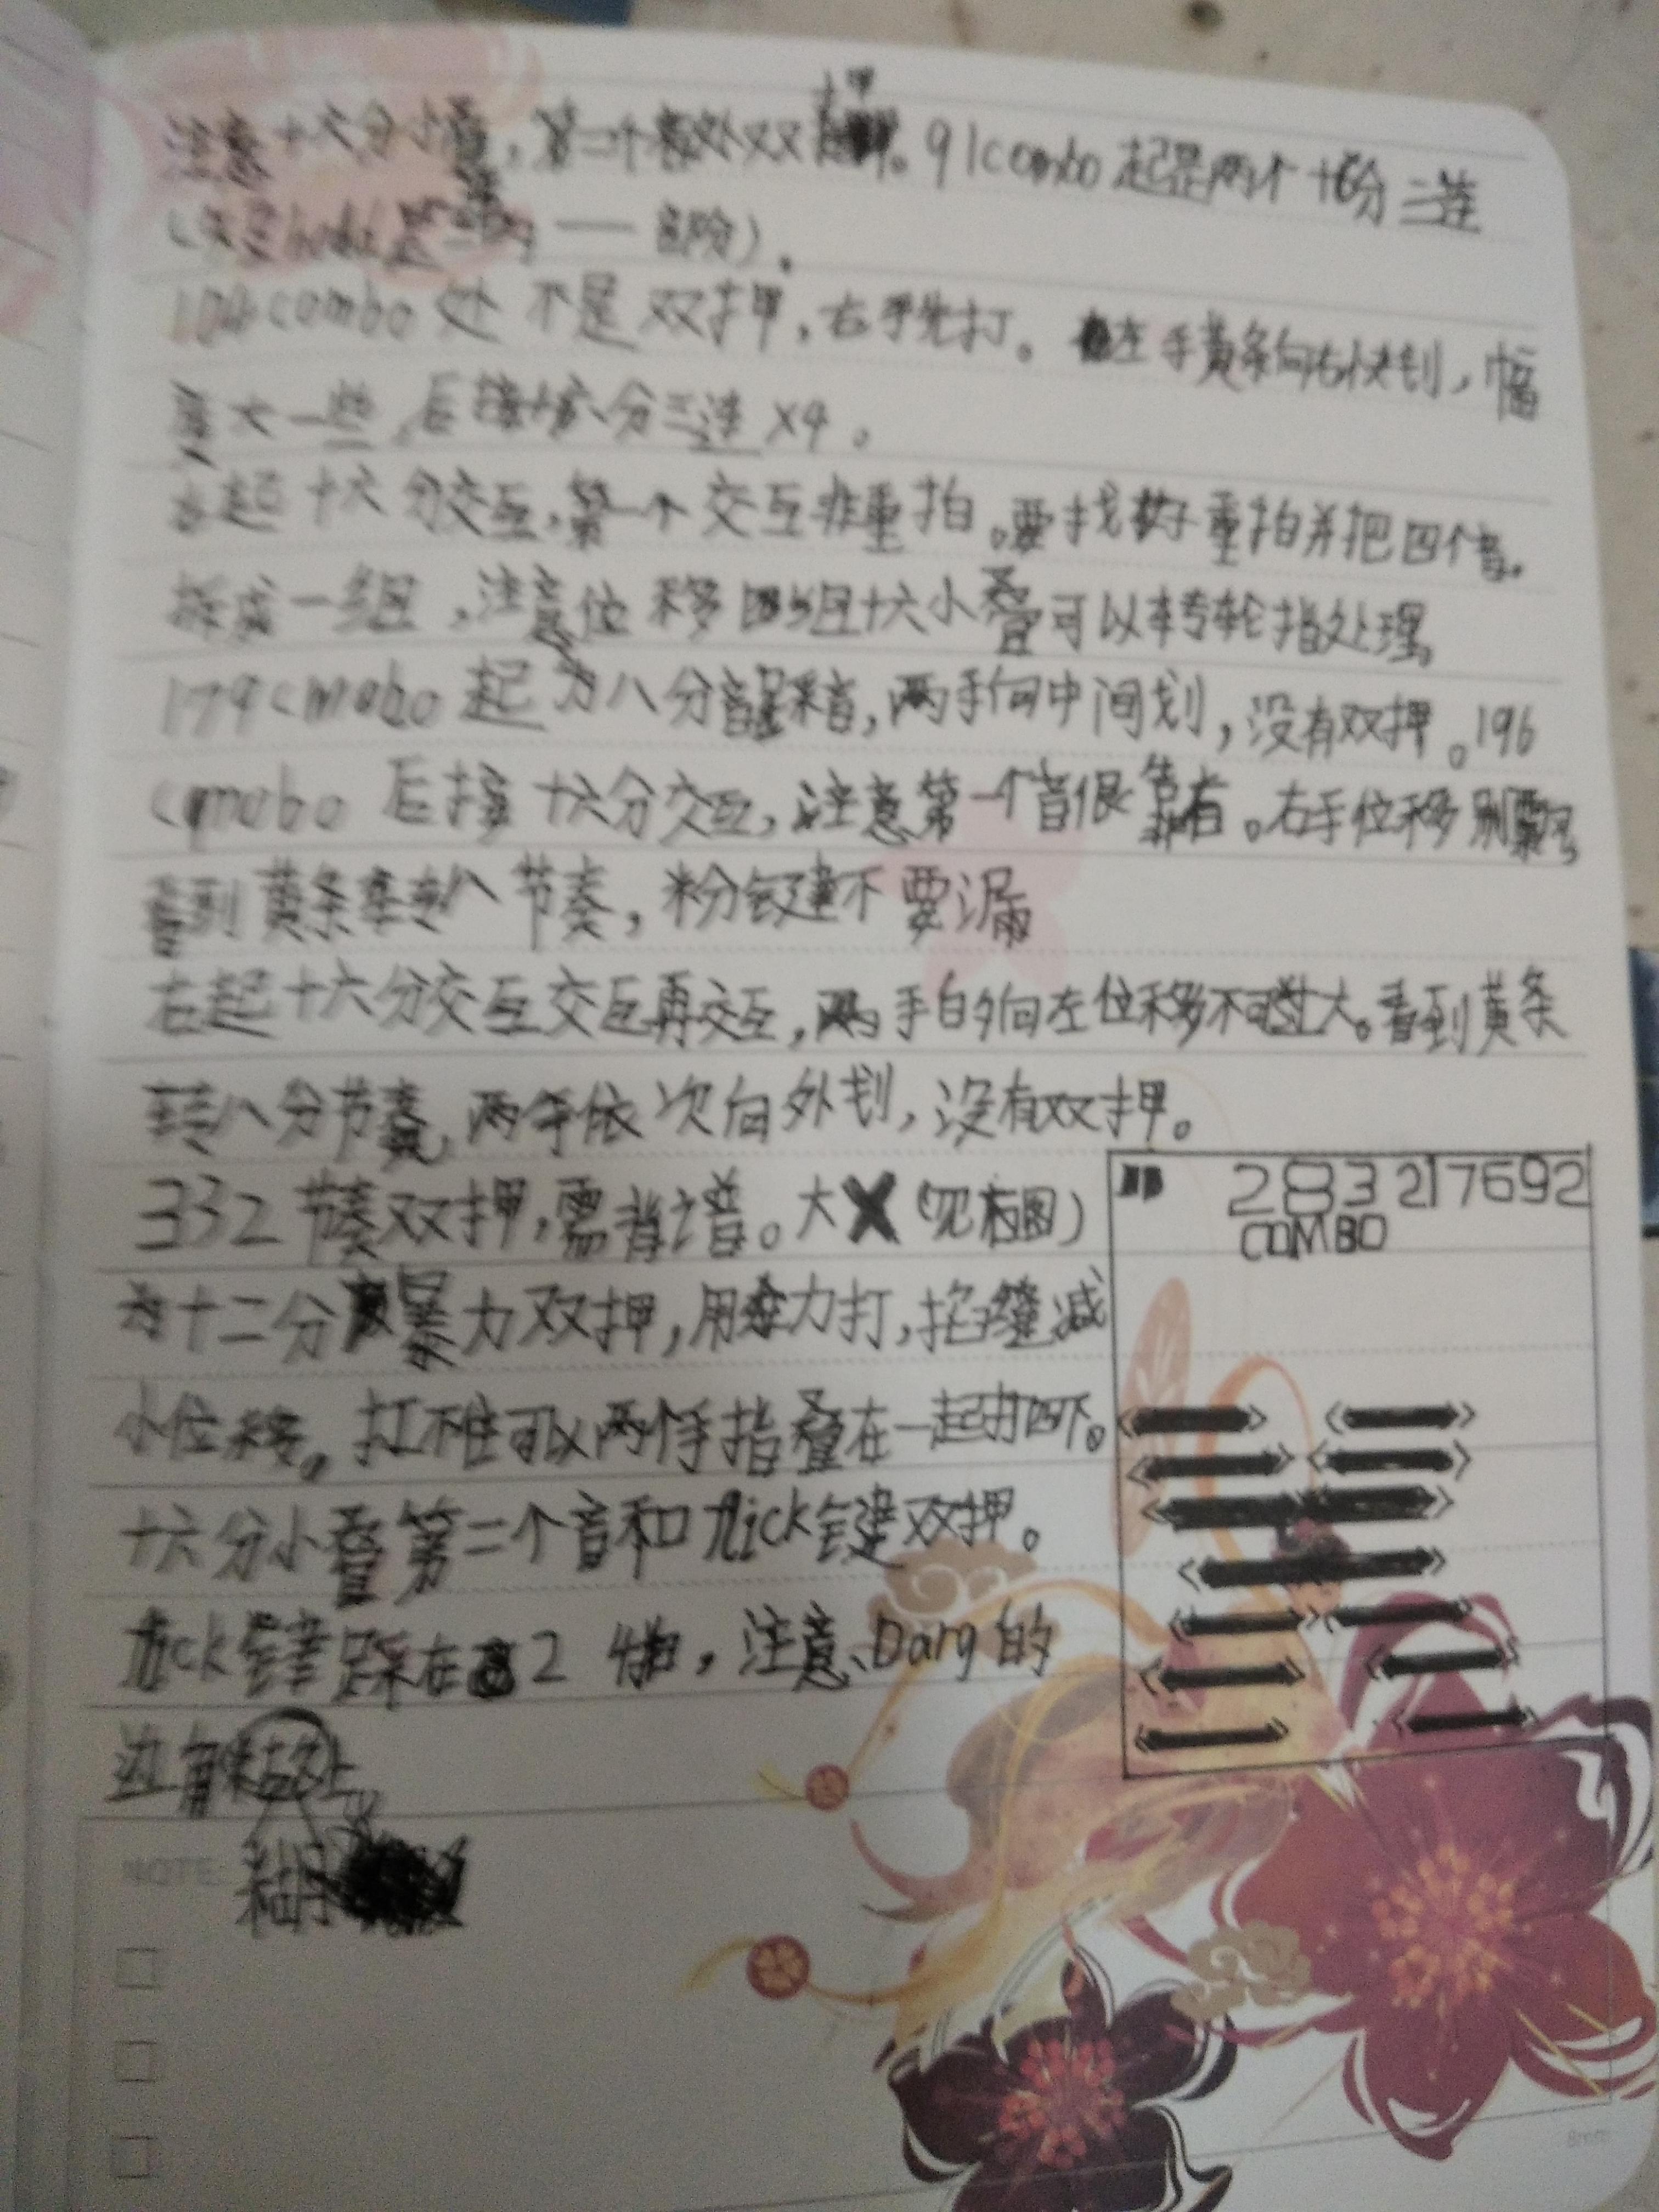 注意十六分小叠,第二个 处双押。91combo起是两个十六分三连
104combo处不是双押,右手先打。左手黄条向右快划,幅
大一些,后接十六分三连X4。
右起十六分交互,第一个交互非重拍。要找好重拍并把四个音。
拆成一组,注意位移四组十六小叠可以转轮指处理,
179cmobo起为八分音 ,两手向中间划,没有双押。196
cpmobo后接十六分交互,注意第一个音很靠右。右手位移别飘
看到黄条 转八节奏,粉键不要漏
右起十六分交互交互再交互,两手的向左位移不可过大。看到黄条
转八分节奏,两手依次向外划,没有双押。
332节奏双押,需背谱。大X(见右图)
为十二分暴力双押,用 力打,掐缝减
小位移,打不住可以两个手指叠在一起打四下。
十六分小叠第二个音和flick键双押。
flick键踩在2 4拍,注意Darg的
边有
糊
283 217692
COMBO
NOTE: